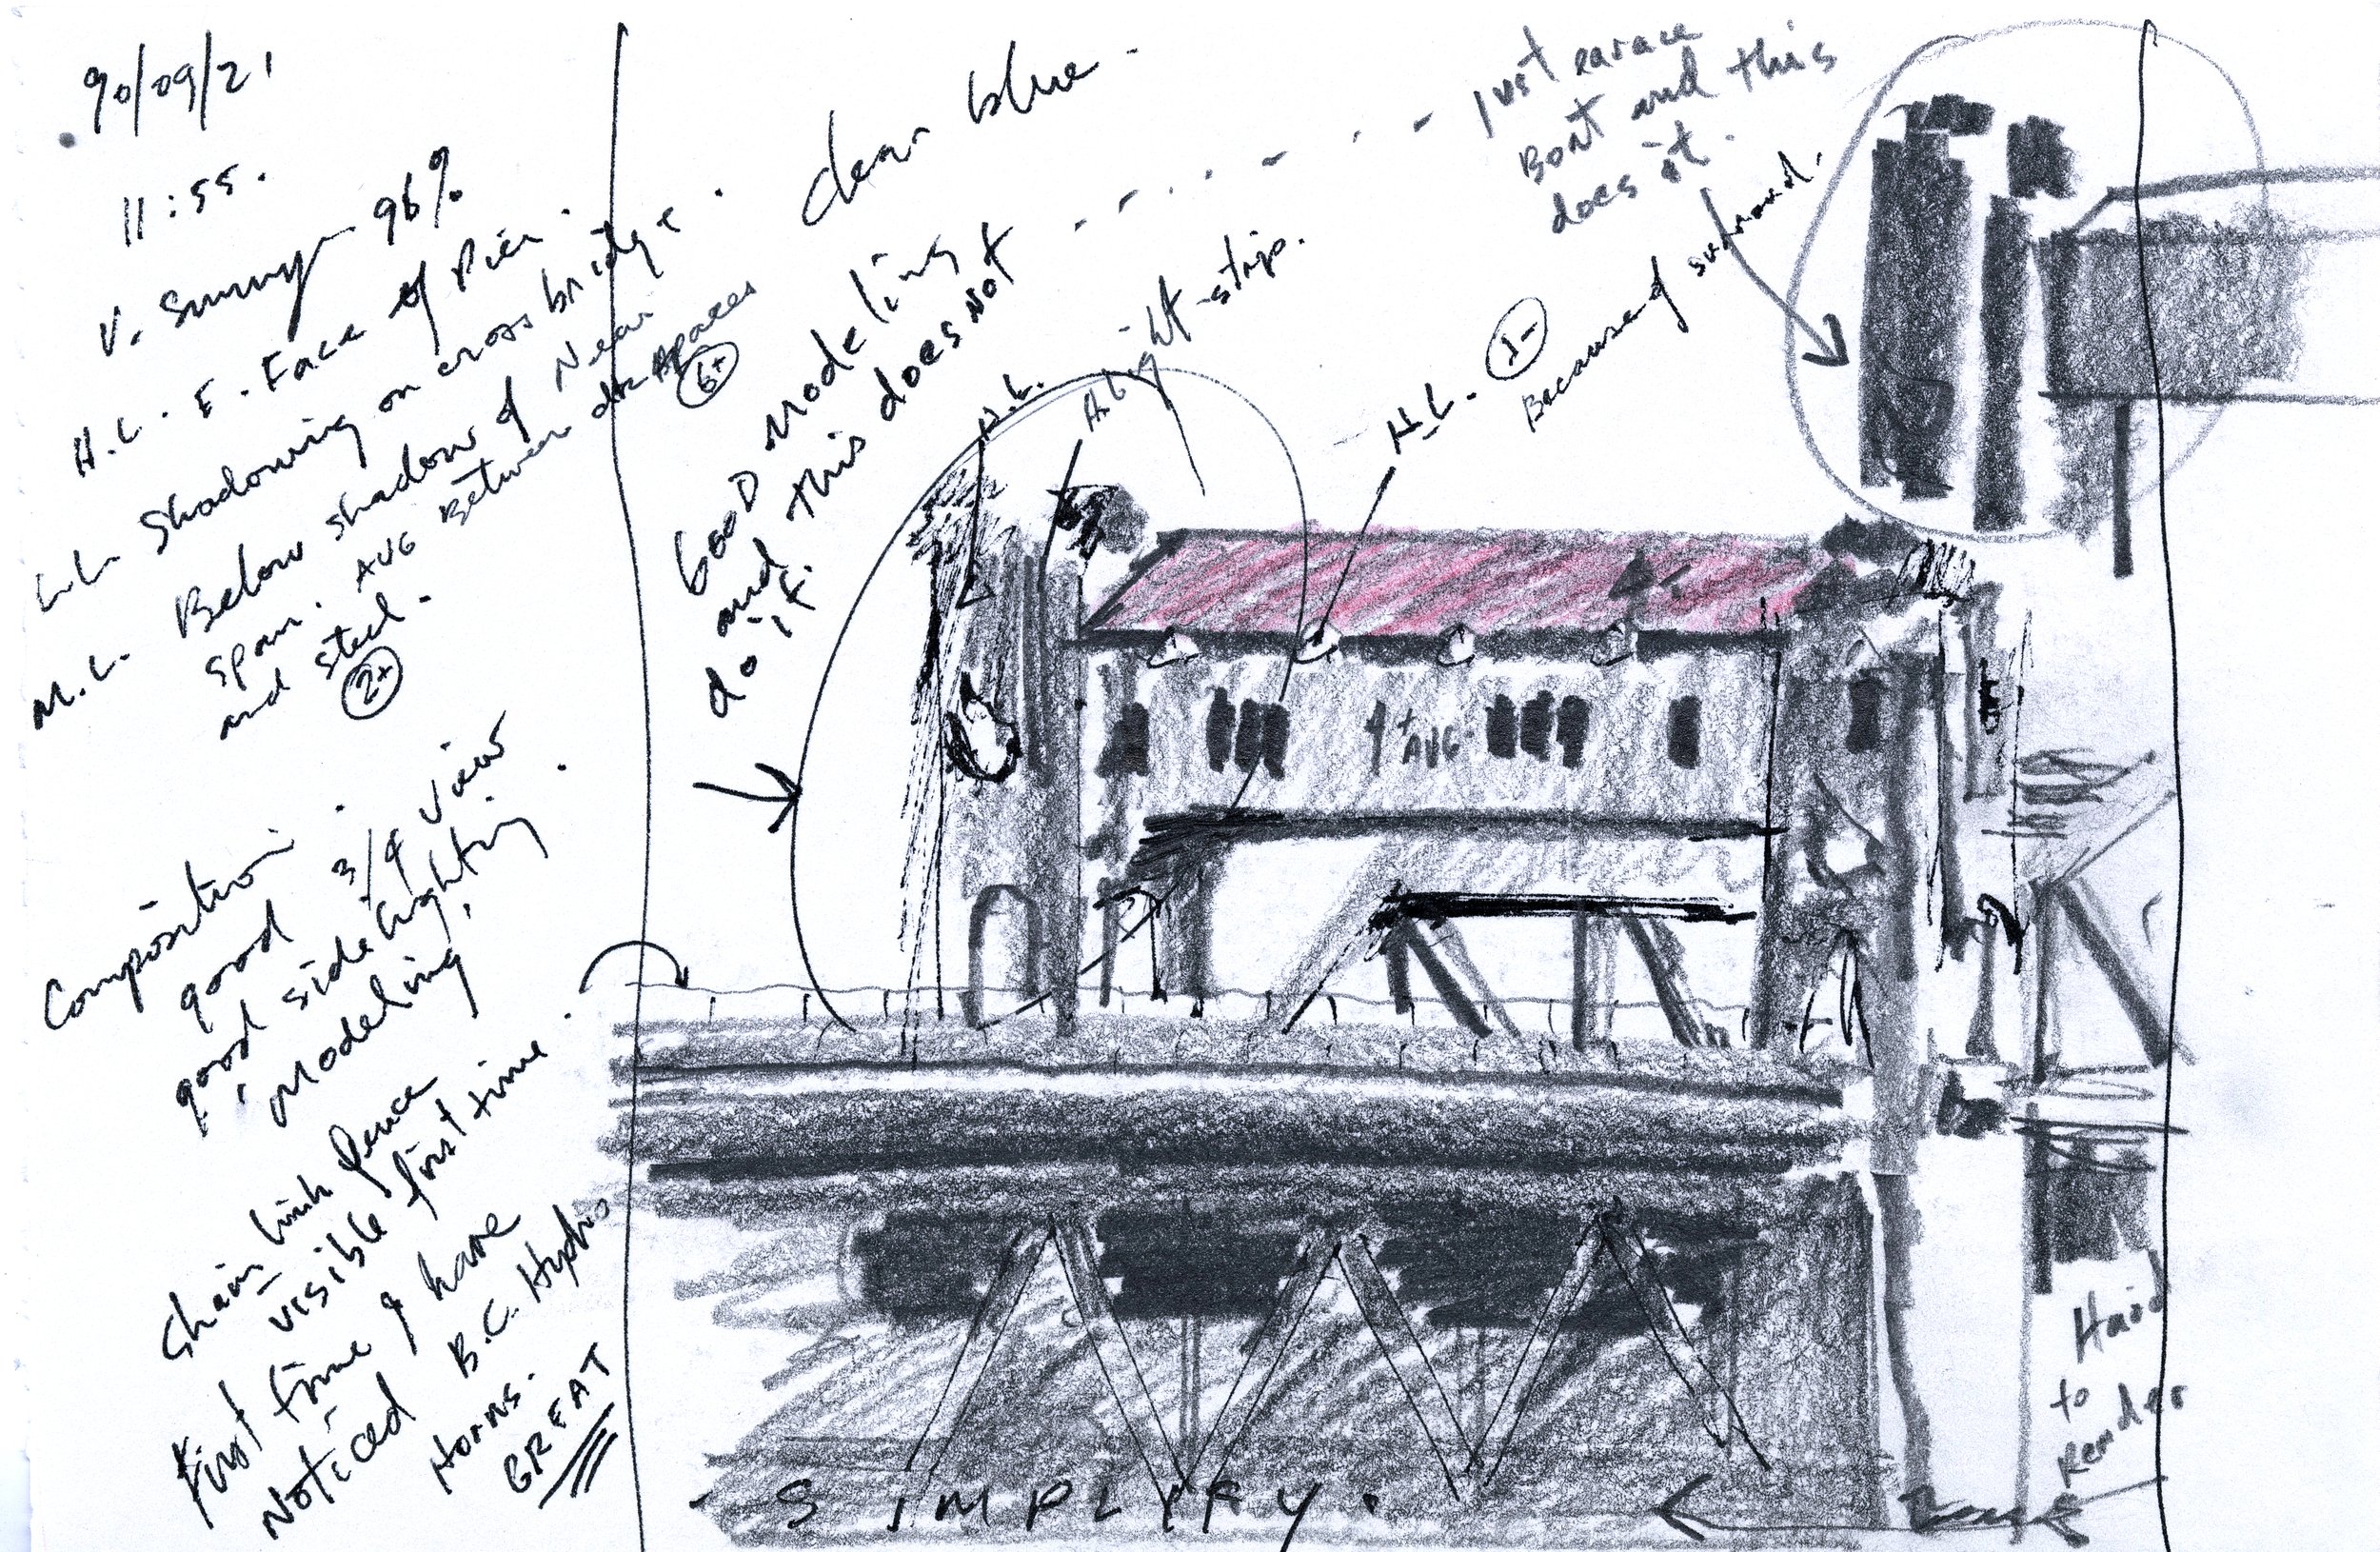 90/09/21
11:55.
V. Sunny 96%
H.L. E. Face of Pier.
L.L. Shadowing on cross bridge.
M.L. Below shadow of Near
span. AUG Between dk spaces
and steel.
2+
6+
clear blue.
Good modeling
and this does not
do it.
Just
Bort and this
does it.
H.L.
A light strip.
H.L. 1-
Because of surround.
4+
AVG.
Composition.
good 3/4 view
good side lighting.
modeling.
Chain link fence
visible first time.
First time I have
Noticed B.C. Hydro
Horns.
GREAT
Hard
to
Render
- SIMPLIFY.